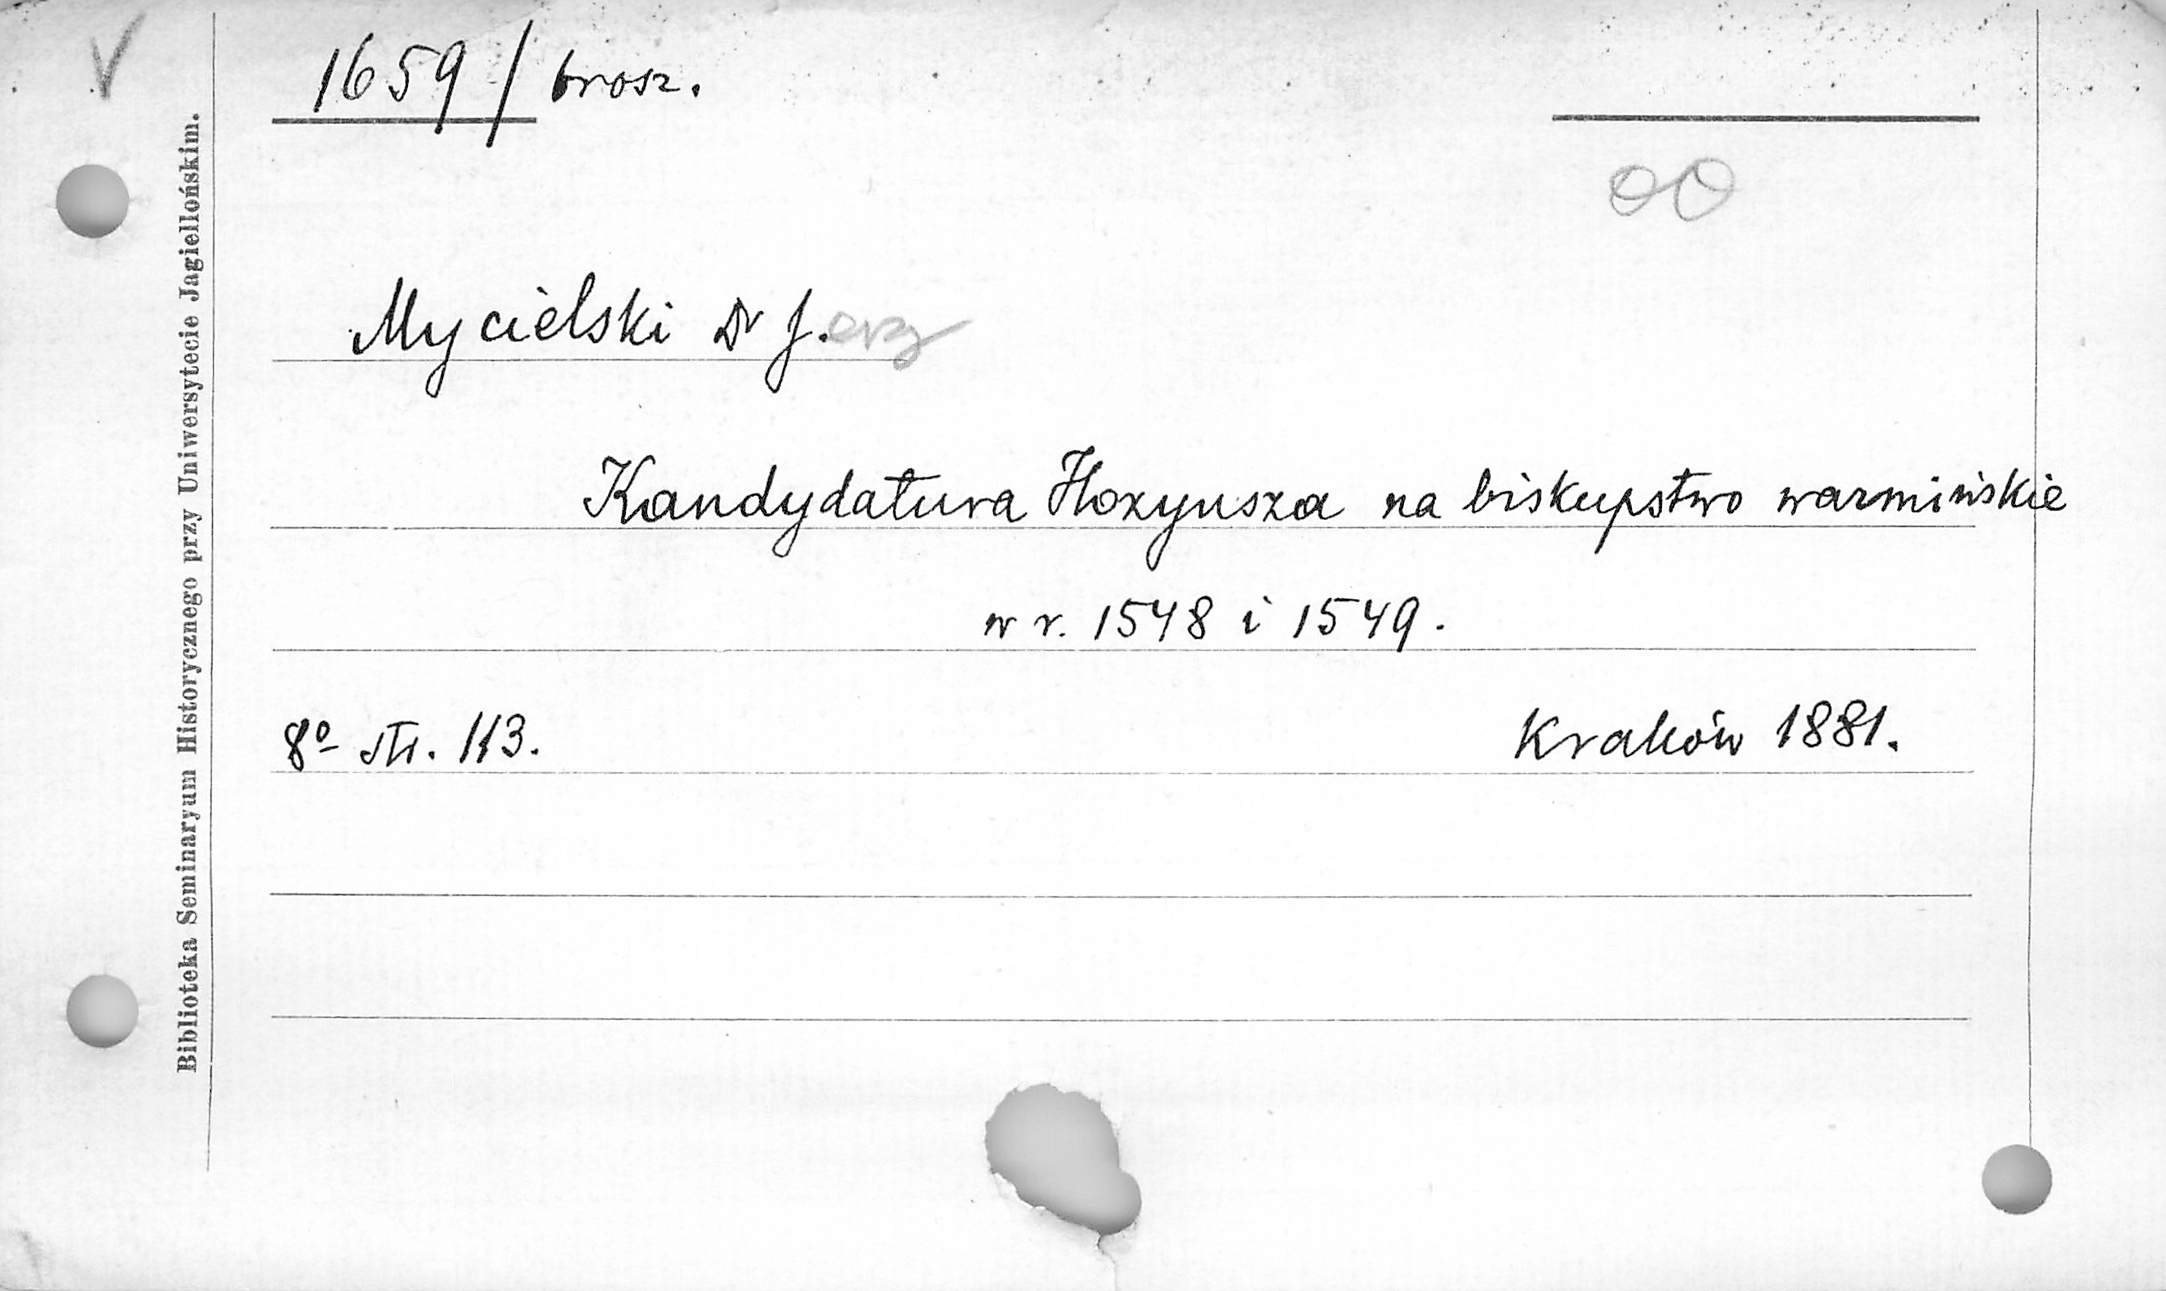 V
1659/brosz.
OO
Mycielski Dr J.erzy
Kandydatura Hozyusza na biskupstwo warmińskie
w r. 1548 i 1549.
8º str. 113.
Kraków 1881.
Biblioteka Seminaryun Historycznego przy Uniwersytecie Jagiellońskim.